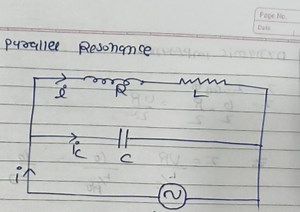 Page No.
Date
Parallel Resonance
i R L
ic C
i